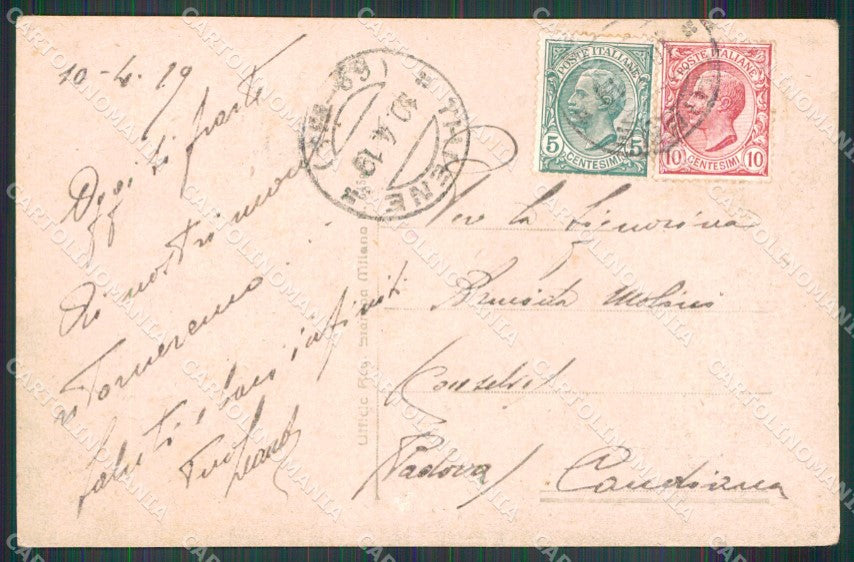 10-4-19
Oggi si parte
Ai nostri mon
Torneremo...
Saluti e baci infiniti
Tuo
POSTE ITALIANE
5 CENTESIMI 5
POSTE ITALIANE
10 CENTESIMI 10
THIENE
10.4.19
Per la Signorina
Armida Molini
Conselve
Padova / Candiana
Ufficio Rev. Stampa Milano
CARTOLINOMANIA